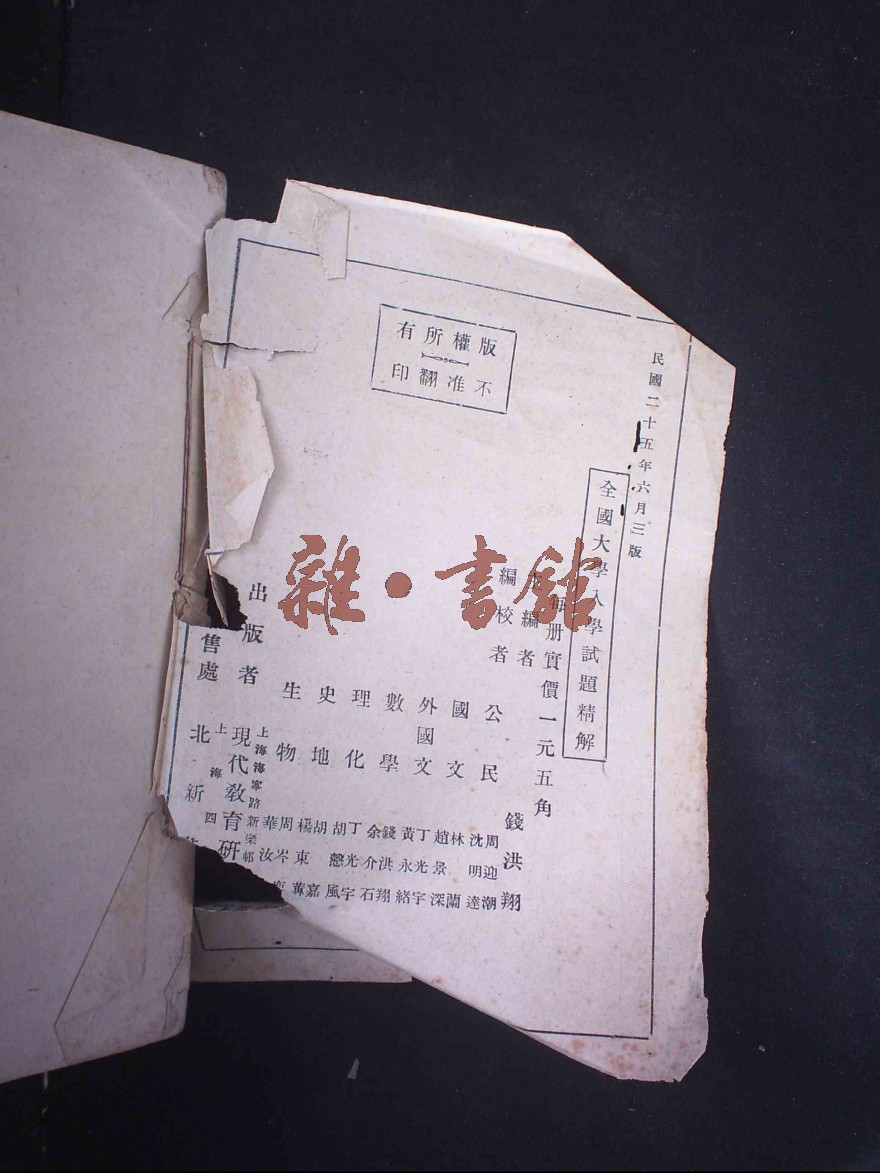 民國二十五年六月三版
全國大學入學試題精解
每册實價一元五角
編者 錢洪翔
編校者
公民 周迎潮
沈明達
國文 林 蘭
趙景深
外國文 丁光宇
黃永緒
數學 錢洪翔
余介石
理化 丁光宇
胡憨風
史地 胡 嘉
楊東蓴
生物 周岑
華汝
出版者 現代教育研
上海海寧路新樂邨
售處 北新
上海四
版權所有
不准翻印
雜·書館